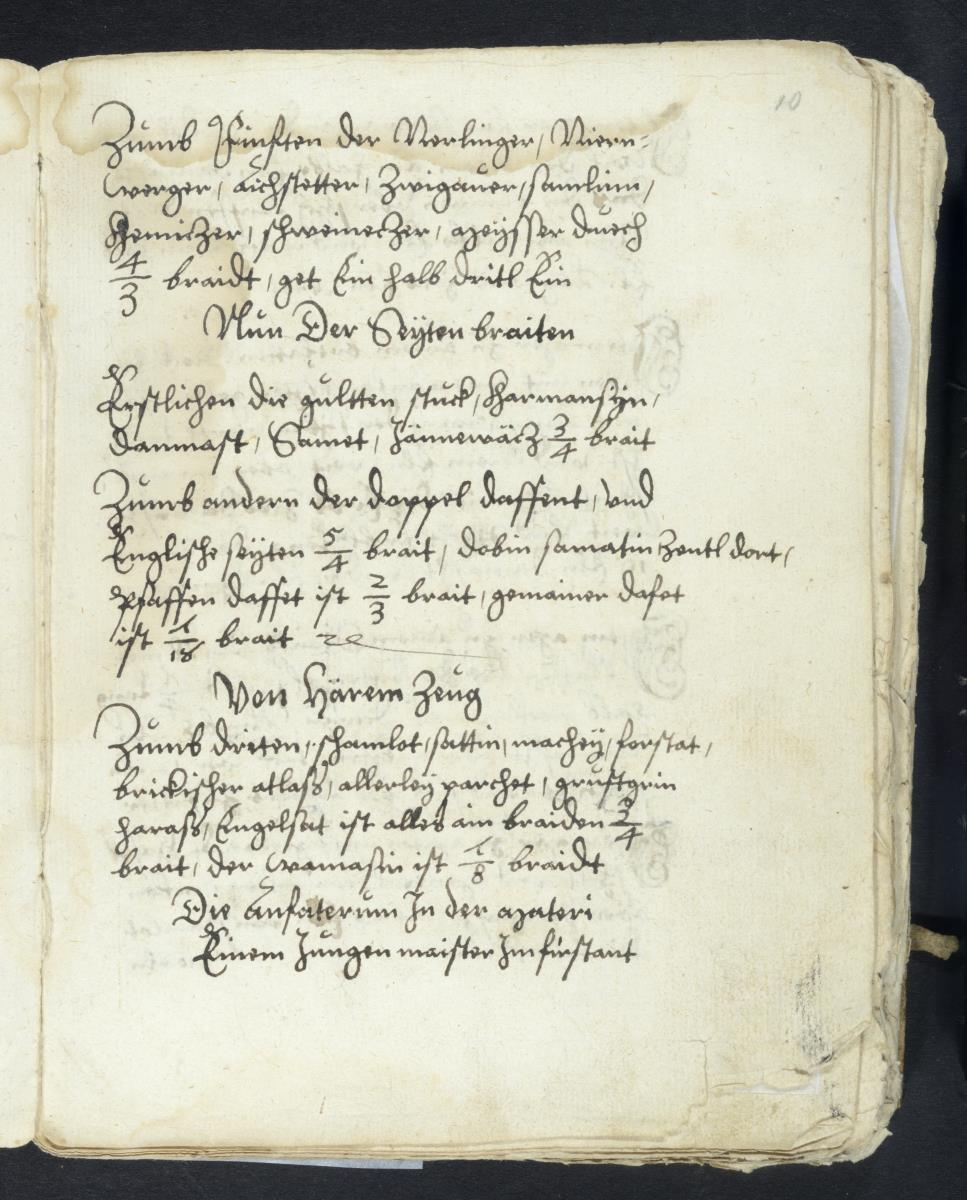 10
Zumb Fünften der Nerlinger, Niern-
werger, Aichstetter, Zwigauer, samlinn,
Kemiczer, schweineczer, meysser duech
4/3 braidt, get Ein halb dritl Ein
Nun Der Seÿten braiten
Erstlichen die gultten stuck, Karmansyn,
dammast, Samet, Jännewäcz 3/4 brait
Zumb andern der doppel daffent, und
Englische seÿten 5/4 brait, dobin samatin zentl dort,
pfaffen daffet ist 2/3 brait, gemainer dafet
ist brait
Von härem Zeug
Zumb driten, schamlot, sattin, machey, forstat,
brickischer atlaß, allerleÿ parchet, gruftgrin
haraß, Engelsat ist alles ain braiden 3/4
brait, der wamasin ist 1/8 braidt
Die In der materi
Einem Jungen maister Im firstant